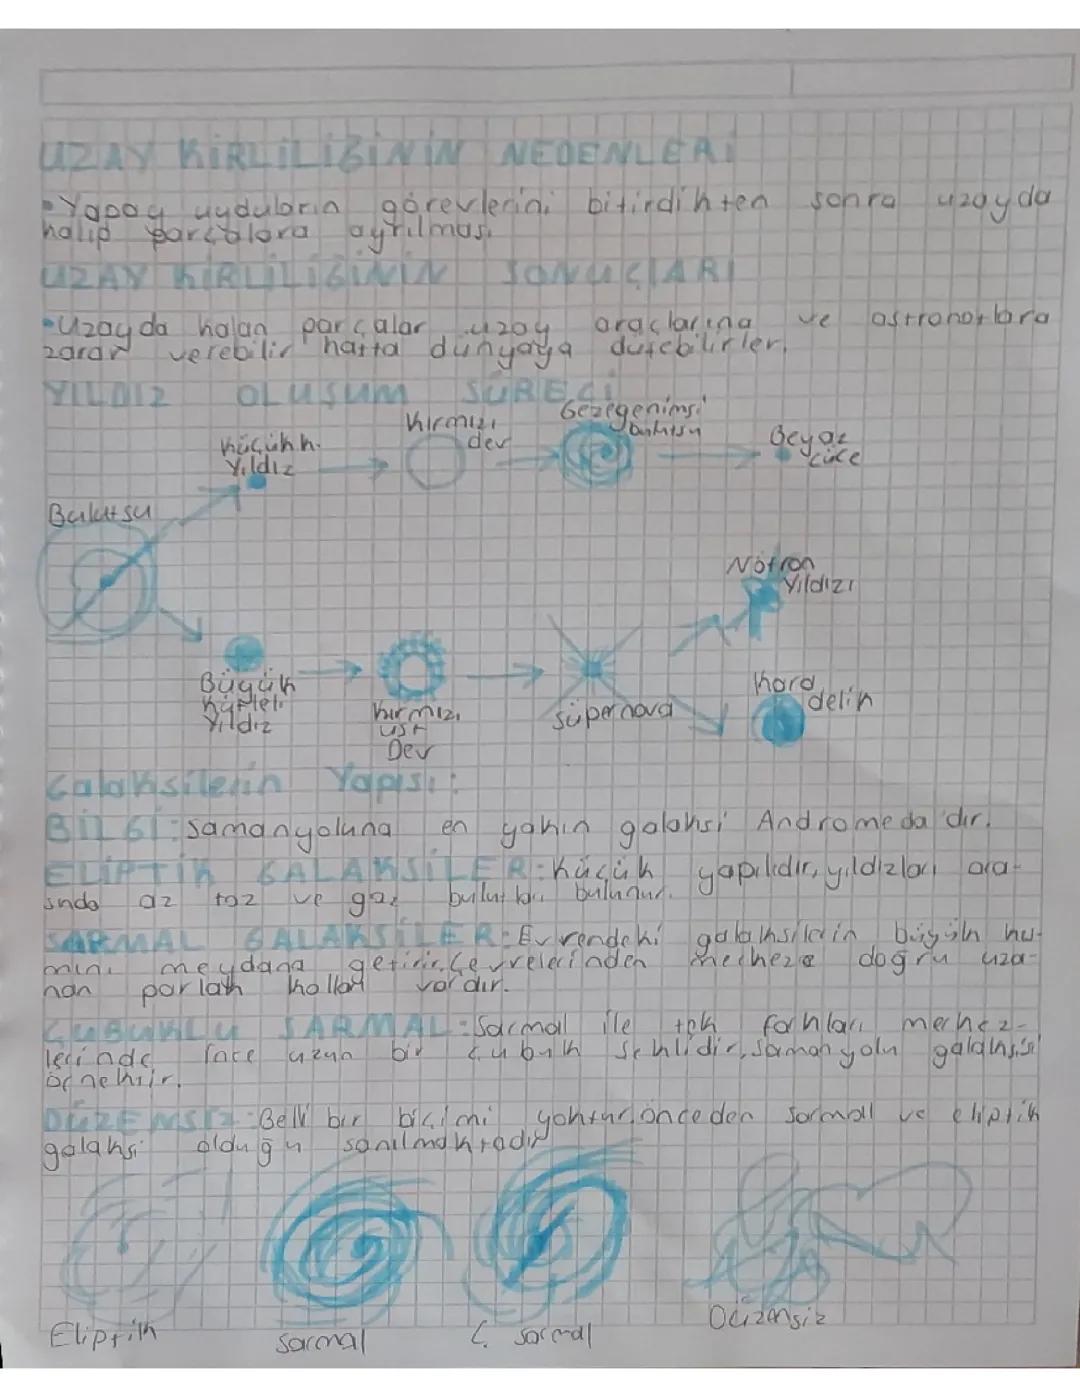 UZAY KİRLİLİĞİNİN NEDENLERİ
•Yapay uyduların görevlerini bitirdikten sonra uzayda
kalıp parçalara ayrılması.
UZAY KİRLİLİĞİNİN SONUÇLARI
•Uzayda kalan parçalar uzay araçlarına ve astronotlara
zarar verebilir hatta dünyaya düşebilirler.
YILDIZ OLUŞUM SÜRECİ
Küçük k.
Yıldız
Kırmızı
dev
Gezegenimsi
bulutsu
Beyaz
cüce
Bulutsu
Nötron
Yıldızı
Büyük
Kütleli
Yıldız
Kırmızı
üst
Dev
süpernova
Kara
delik
Galaksilerin Yapısı:
BİLGİ: Samanyoluna en yakın galaksi Andromeda'dır.
ELİPTİK GALAKSİLER: Küçük yapılıdır, yıldızları ara-
sında az toz ve gaz bulutları bulunur.
SARMAL GALAKSİLER: Evrendeki galaksilerin büyük kıs-
mını meydana getirir. Çevrelerinden merkeze doğru uza-
nan parlak kolları vardır.
ÇUBUKLU SARMAL: Sarmal ile tek farkları merkez-
lerinde ince uzun bir çubuk şeklidir, samanyolu galaksisi
örnektir.
DÜZENSİZ: Belli bir biçimi yoktur, önceden sarmal ve eliptik
galaksi olduğu sanılmaktadır
Eliptik
Sarmal
Ç. Sarmal
Düzensiz